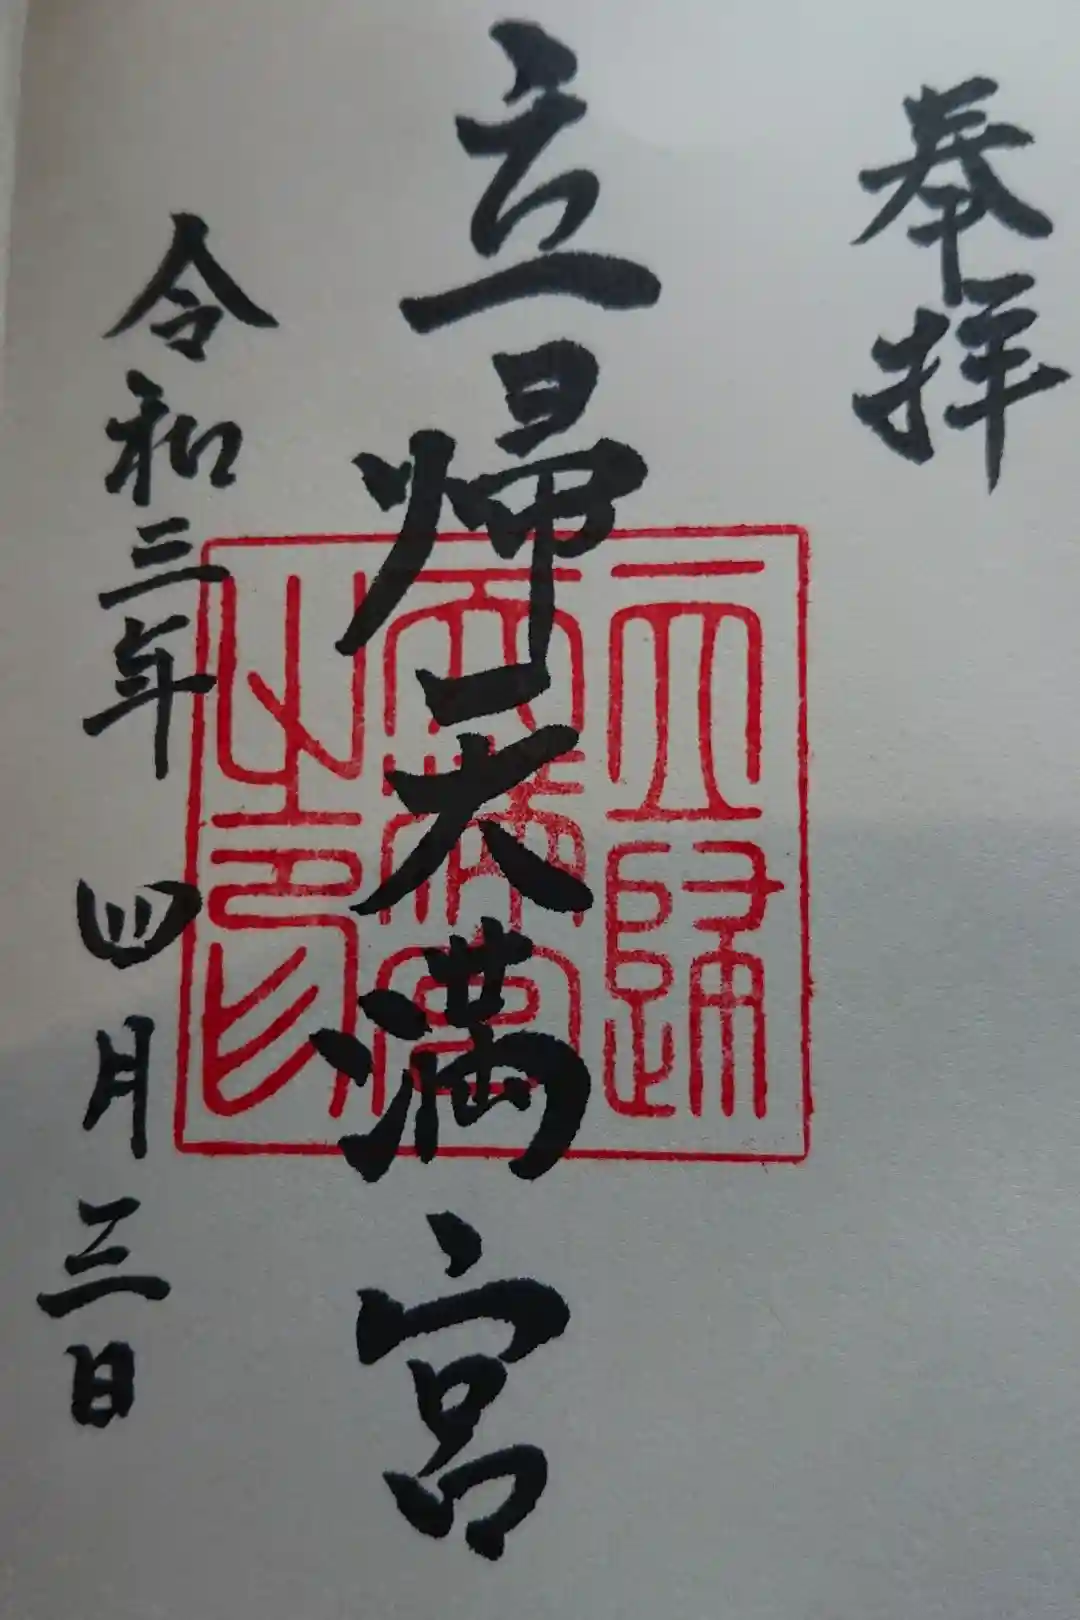 奉拝
立帰天満宮
令和三年四月三日
立歸
天満宮
之印